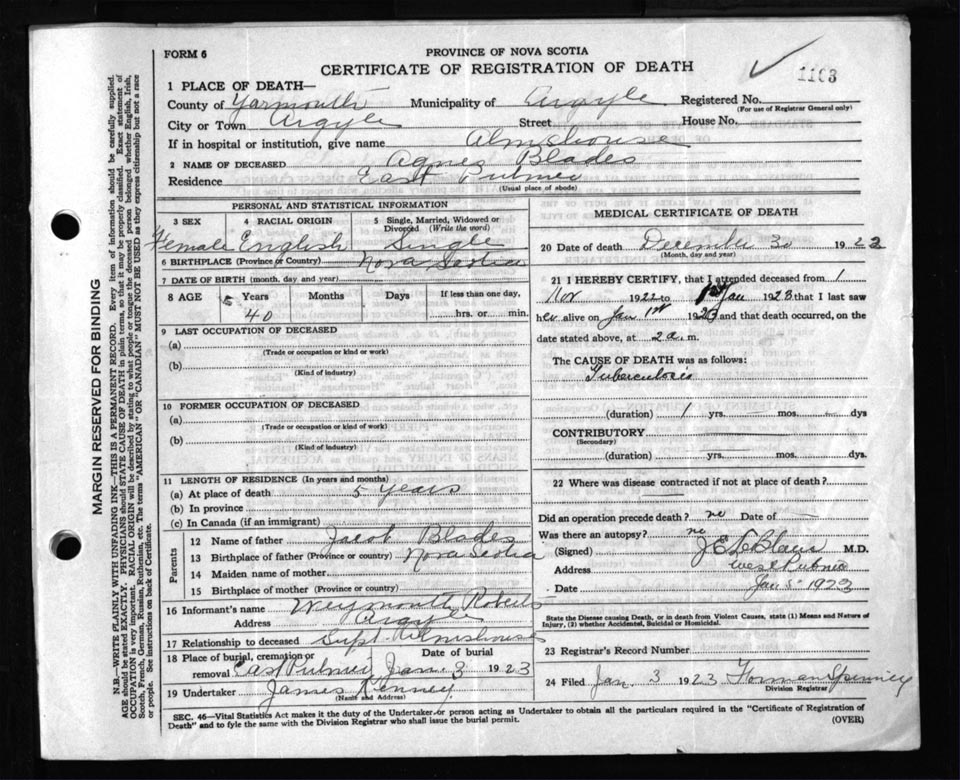 FORM 6
PROVINCE OF NOVA SCOTIA
CERTIFICATE OF REGISTRATION OF DEATH
1163
1 PLACE OF DEATH—
County of Yarmouth Municipality of Argyle Registered No.
(For use of Registrar General only)
City or Town Argyle Street House No.
If in hospital or institution, give name Almshouse
2 NAME OF DECEASED Agnes Blades
Residence East Pubnico
(Usual place of abode)
PERSONAL AND STATISTICAL INFORMATION
3 SEX 4 RACIAL ORIGIN 5 Single, Married, Widowed or Divorced (Write the word)
Female English Single
6 BIRTHPLACE (Province or Country) Nova Scotia
7 DATE OF BIRTH (month, day and year)
8 AGE Years Months Days If less than one day,
40 hrs. or min.
9 LAST OCCUPATION OF DECEASED
(a)
(Trade or occupation or kind of work)
(b)
(Kind of industry)
10 FORMER OCCUPATION OF DECEASED
(a)
(Trade or occupation or kind of work)
(b)
(Kind of industry)
11 LENGTH OF RESIDENCE (In years and months)
(a) At place of death 5 years
(b) In province
(c) In Canada (if an immigrant)
Parents
12 Name of father Jacob Blades
13 Birthplace of father (Province or country) Nova Scotia
14 Maiden name of mother
15 Birthplace of mother (Province or country)
16 Informant's name Weymouth Roberts
Address Argyle
17 Relationship to deceased Supt. Almshouse
18 Place of burial, cremation or removal East Pubnico Date of burial Jan 3 1923
19 Undertaker James Kenney
(Name and Address)
MEDICAL CERTIFICATE OF DEATH
20 Date of death December 30 1922
(Month, day and year)
21 I HEREBY CERTIFY, that I attended deceased from 1
Nov 1922 to 1st Jan 1923 that I last saw
her alive on Jan 1st 1923 and that death occurred, on
date stated above, at 2 a. m.
The CAUSE OF DEATH was as follows:
Tuberculosis
(duration) 1 yrs. mos. dys
CONTRIBUTORY
(Secondary)
(duration) yrs. mos. dys.
22 Where was disease contracted if not at place of death?
Did an operation precede death? no Date of
Was there an autopsy? no
(Signed) J E LeBlanc M.D.
Address West Pubnico
Date Jan 5 1922
State the Disease causing Death, or in death from Violent Causes, state (1) Means and Nature of Injury, (2) whether Accidental, Suicidal or Homicidal.
23 Registrar's Record Number
24 Filed Jan 3 1923 Forman Spinney
Division Registrar
SEC. 46—Vital Statistics Act makes it the duty of the Undertaker or person acting as Undertaker to obtain all the particulars required in the "Certificate of Registration of
Death" and to fyle the same with the Division Registrar who shall issue the burial permit.
(OVER)
MARGIN RESERVED FOR BINDING
N.B.—WRITE PLAINLY WITH UNFADING INK—THIS IS A PERMANENT RECORD. Every item of information should be carefully supplied.
AGE should be stated EXACTLY. PHYSICIANS should STATE CAUSE OF DEATH in plain terms, so that it may be properly classified. Exact statement of
OCCUPATION is very important. RACIAL ORIGIN will be described by stating to what people or tongue the deceased person belonged whether English, Irish,
Scotch, French, German, Russian, Ruthenian, etc. The terms "AMERICAN" OR "CANADIAN" MUST NOT BE USED as they express citizenship but not a race
or people. See instructions on back of Certificate.